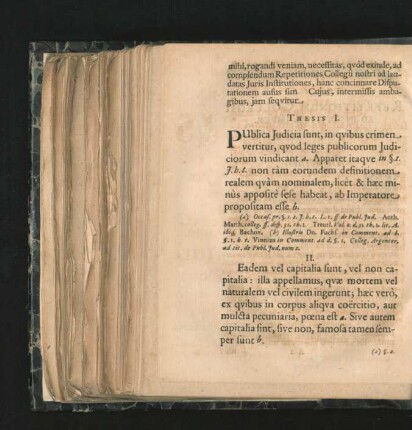 mihi, rogandi veniam, necessitas, qvód exinde, ad
complendum Repetitiones Collegii nostri ad lau-
datas Juris Institutiones, hanc concinnare Dispu-
tationem ausus sim Cujus, intermissis amba-
gibus, jam seqvitur.
THESIS I.
PUblica Judicia sunt, in qvibus crimen
vertitur, qvod leges publicorum Judi-
ciorum vindicant a. Apparet itaqve in §. 1.
J. h. t. non tàm eorundem definitionem
realem qvàm nominalem, licèt & hæc mi-
nùs appositè sese habeat, ab Imperatore
propositam esse b.
(a) pr. §. 1. 2. J. h. t. L. 1. ff. de Publ. Jud. Anth.
Matth. colleg. ff. disp. 32. th. 1. Treutl. Vol. 2. d. 32. th. 1. lit. A.
ibiq. Bachov. (b) Illustris Dn. Pachs. in Comment. ad d.
§. 1. & 2. Vinnius in Comment. ad d. §. 1. Colleg. Argentor.
ad tit. de Publ. Jud. num 2.
II.
Eadem vel capitalia sunt, vel non ca-
pitalia: illa appellamus, qvæ mortem vel
naturalem vel civilem ingerunt; hæc verò,
ex qvibus in corpus aliqva coërcitio, aut
mulcta pecuniaria, pœna est a. Sive autem
capitalia sint, sive non, famosa tamen sem-
per sunt b.
(a) §. 2.